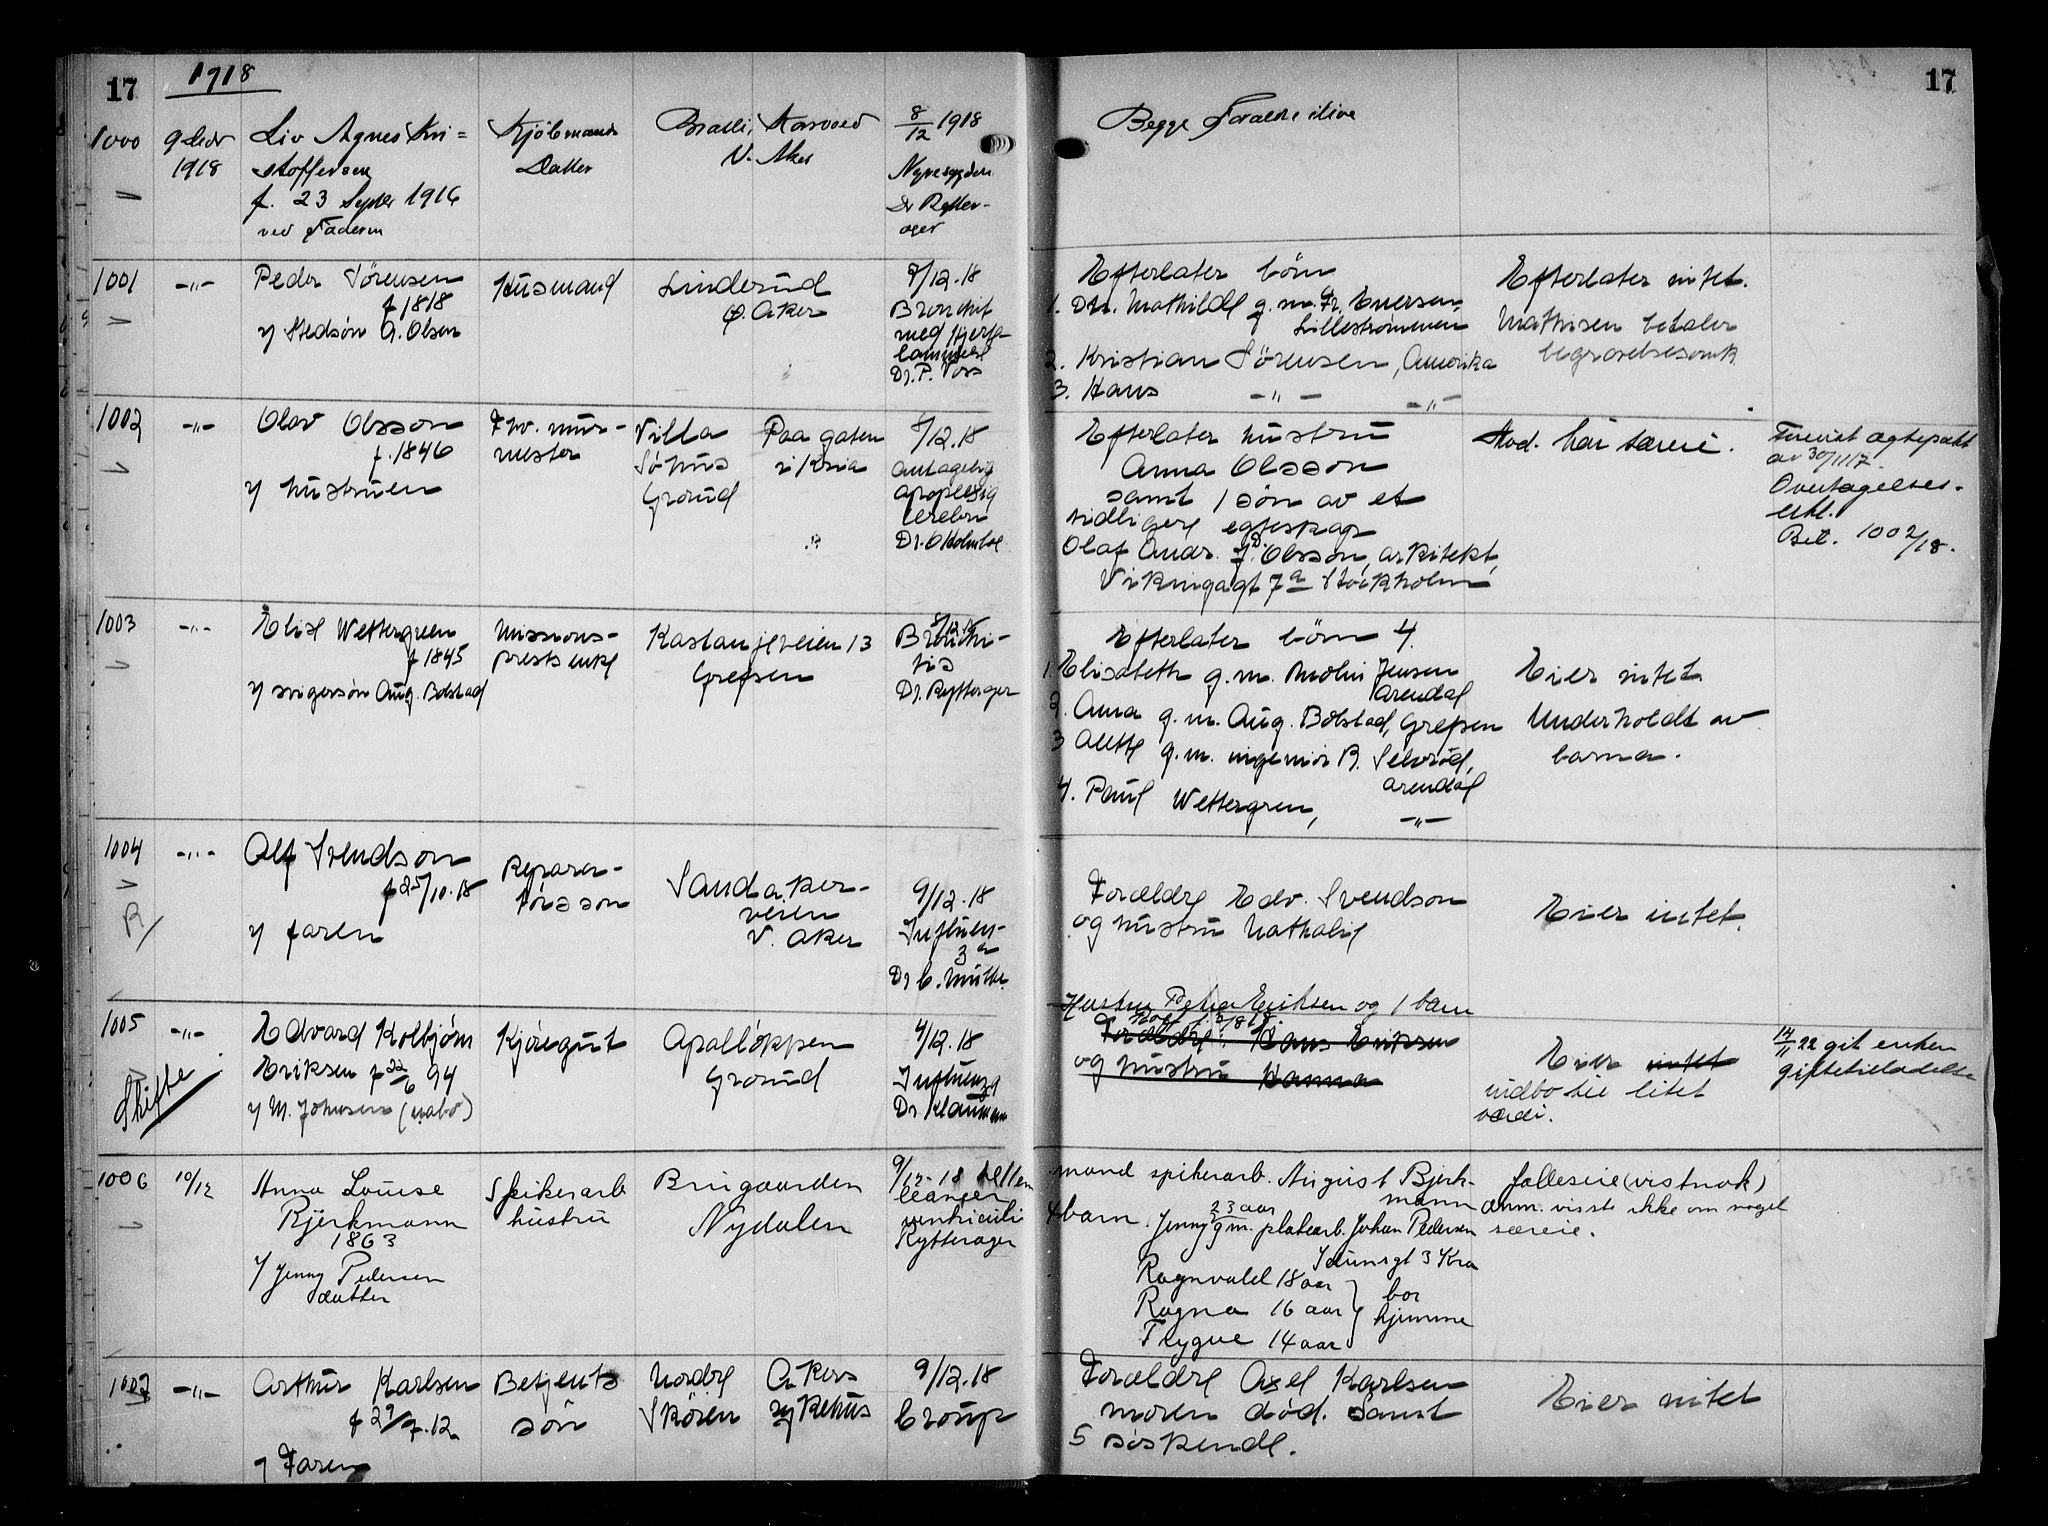 17
1918
17
1000
9 Decbr
1918
Liv Agnes Kri=
stoffersen
f. 23 Septbr 1916
ved Faderen
Kjøbmands
Datter
V. Aker
8/12 1918
Nyresygdom
Dr Rytter-
ager
Begge Forældre ilive
1001
-"-
Peder Sörensen
f 1818
v/ Stedsön A. Olsen
Husmand
Linderud
Ø. Aker
7/12.18
Bronchit
med Hjerte-
lammelse
Dr. P. Voss
Efterlater börn
1. Dtr. Mathilde g.m. Fr. Eversen,
Lilleströmmen
2. Kristian Sörensen, Amerika
3. Hans -"- -"-
Efterlater intet.
Mathisen betaler
begravelsesomk
1002
-"-
Olav Olsson
f. 1846
v/ hustruen
Fhv. mur-
mester
Villa
Söhus
Grorud
Paa gaten
i Kria
5/12.18
antagelig
apoplexia
cerebri
Dr. O Holmboe
Efterlater hustru
Anna Olsson
samt 1 sön av et
tidligere egteskap
Olaf Andr. f. D. Olsson, arkitekt,
Vikingagt 7a Stockholm
Avd. har særeie.
Forevist ægtepakt
av 30/11 17.
Overtagelses-
erkl.
Bil. 1002/18.
1003
-"-
Elise Wettergreen
f 1845
v/ svigersön Aug. Bolstad
Missions-
prests enke
Kastanjeveien 13
Grefsen
8/12.18
Bronchi-
tis
Dr. Rytterager
Efterlater börn 4.
1. Elisabeth g.m. Jensen
Arendal
2. Anna g.m. Aug. Bolstad, Grefsen
3 Alette g.m. ingeniör B. Selvröd,
Arendal
4. Paul Wettergren, -"-
Eier intet.
Underholdt av
barna.
1004
R/
-"-
Alf Svendson
f 25/10.18
v/ faren
Repara-
törs sön
Sandaker-
veien
V. Aker
9/12.18
Influen-
za
Dr C. Müller
Forældre Edv. Svendson
og hustru Nathalie
Eier intet.
1005
Skifte
-"-
Edvard Kolbjörn
Eriksen f 22/6 94
v/ M. Johnsen (nabo)
Kjöregut
Apallökken
Grorud
4/12.18
Influenza
Dr. Klaumann
Hustru Petra Eriksen og 1 barn
Forældre: Hans Eriksen
og hustru Hanna
Eier intet
indbo til litet
værdi.
14/11 22 git enken
giftetilladelse
1006
10/12
Anna Louise
Bjerkmann
1863
v/ Jenny Pedersen
datter
Spikerarb
hustru
Brugaarden
Nydalen
9/12-18
cancer
ventriculi
Rytterager
mand spikerarb. August Bjerk-
mann
4 barn. Jenny 23 aar g.m. platearb. Johan Pedersen
Idunsgt 3 Kra
Ragnvald 18 aar
Ragna 16 aar
Trygve 14 aar
bor
hjemme
fælleseie (vistnok)
anm. visste ikke om noget
særeie.
1007
-"-
Arthur Karlsen
f 29/7.12
v/ Faren
Betjents
sön
Nordre
Skören
Akers
sykehus
9/12.18
Croup
Forældre Axel Karlsen
moren död. Samt
5 söskende.
Eier intet